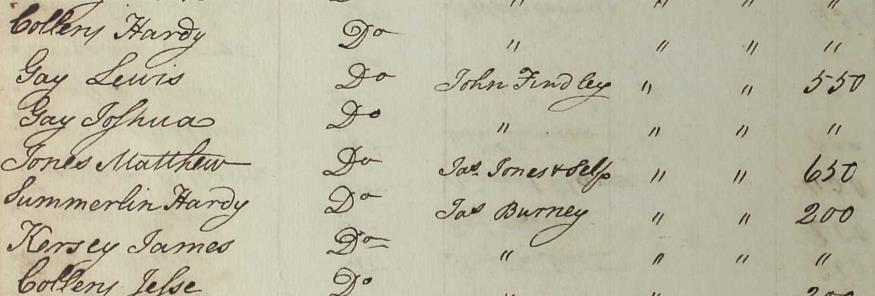 Collens Hardy Do " " " "
Gay Lewis Do John Findley " " 550
Gay Joshua Do " " " "
Jones Matthew Do Jas. Jones & Self " " 650
Summerlin Hardy Do Jas Burney " " 200
Kersey James Do " " " "
Collens Jesse Do " " " 200